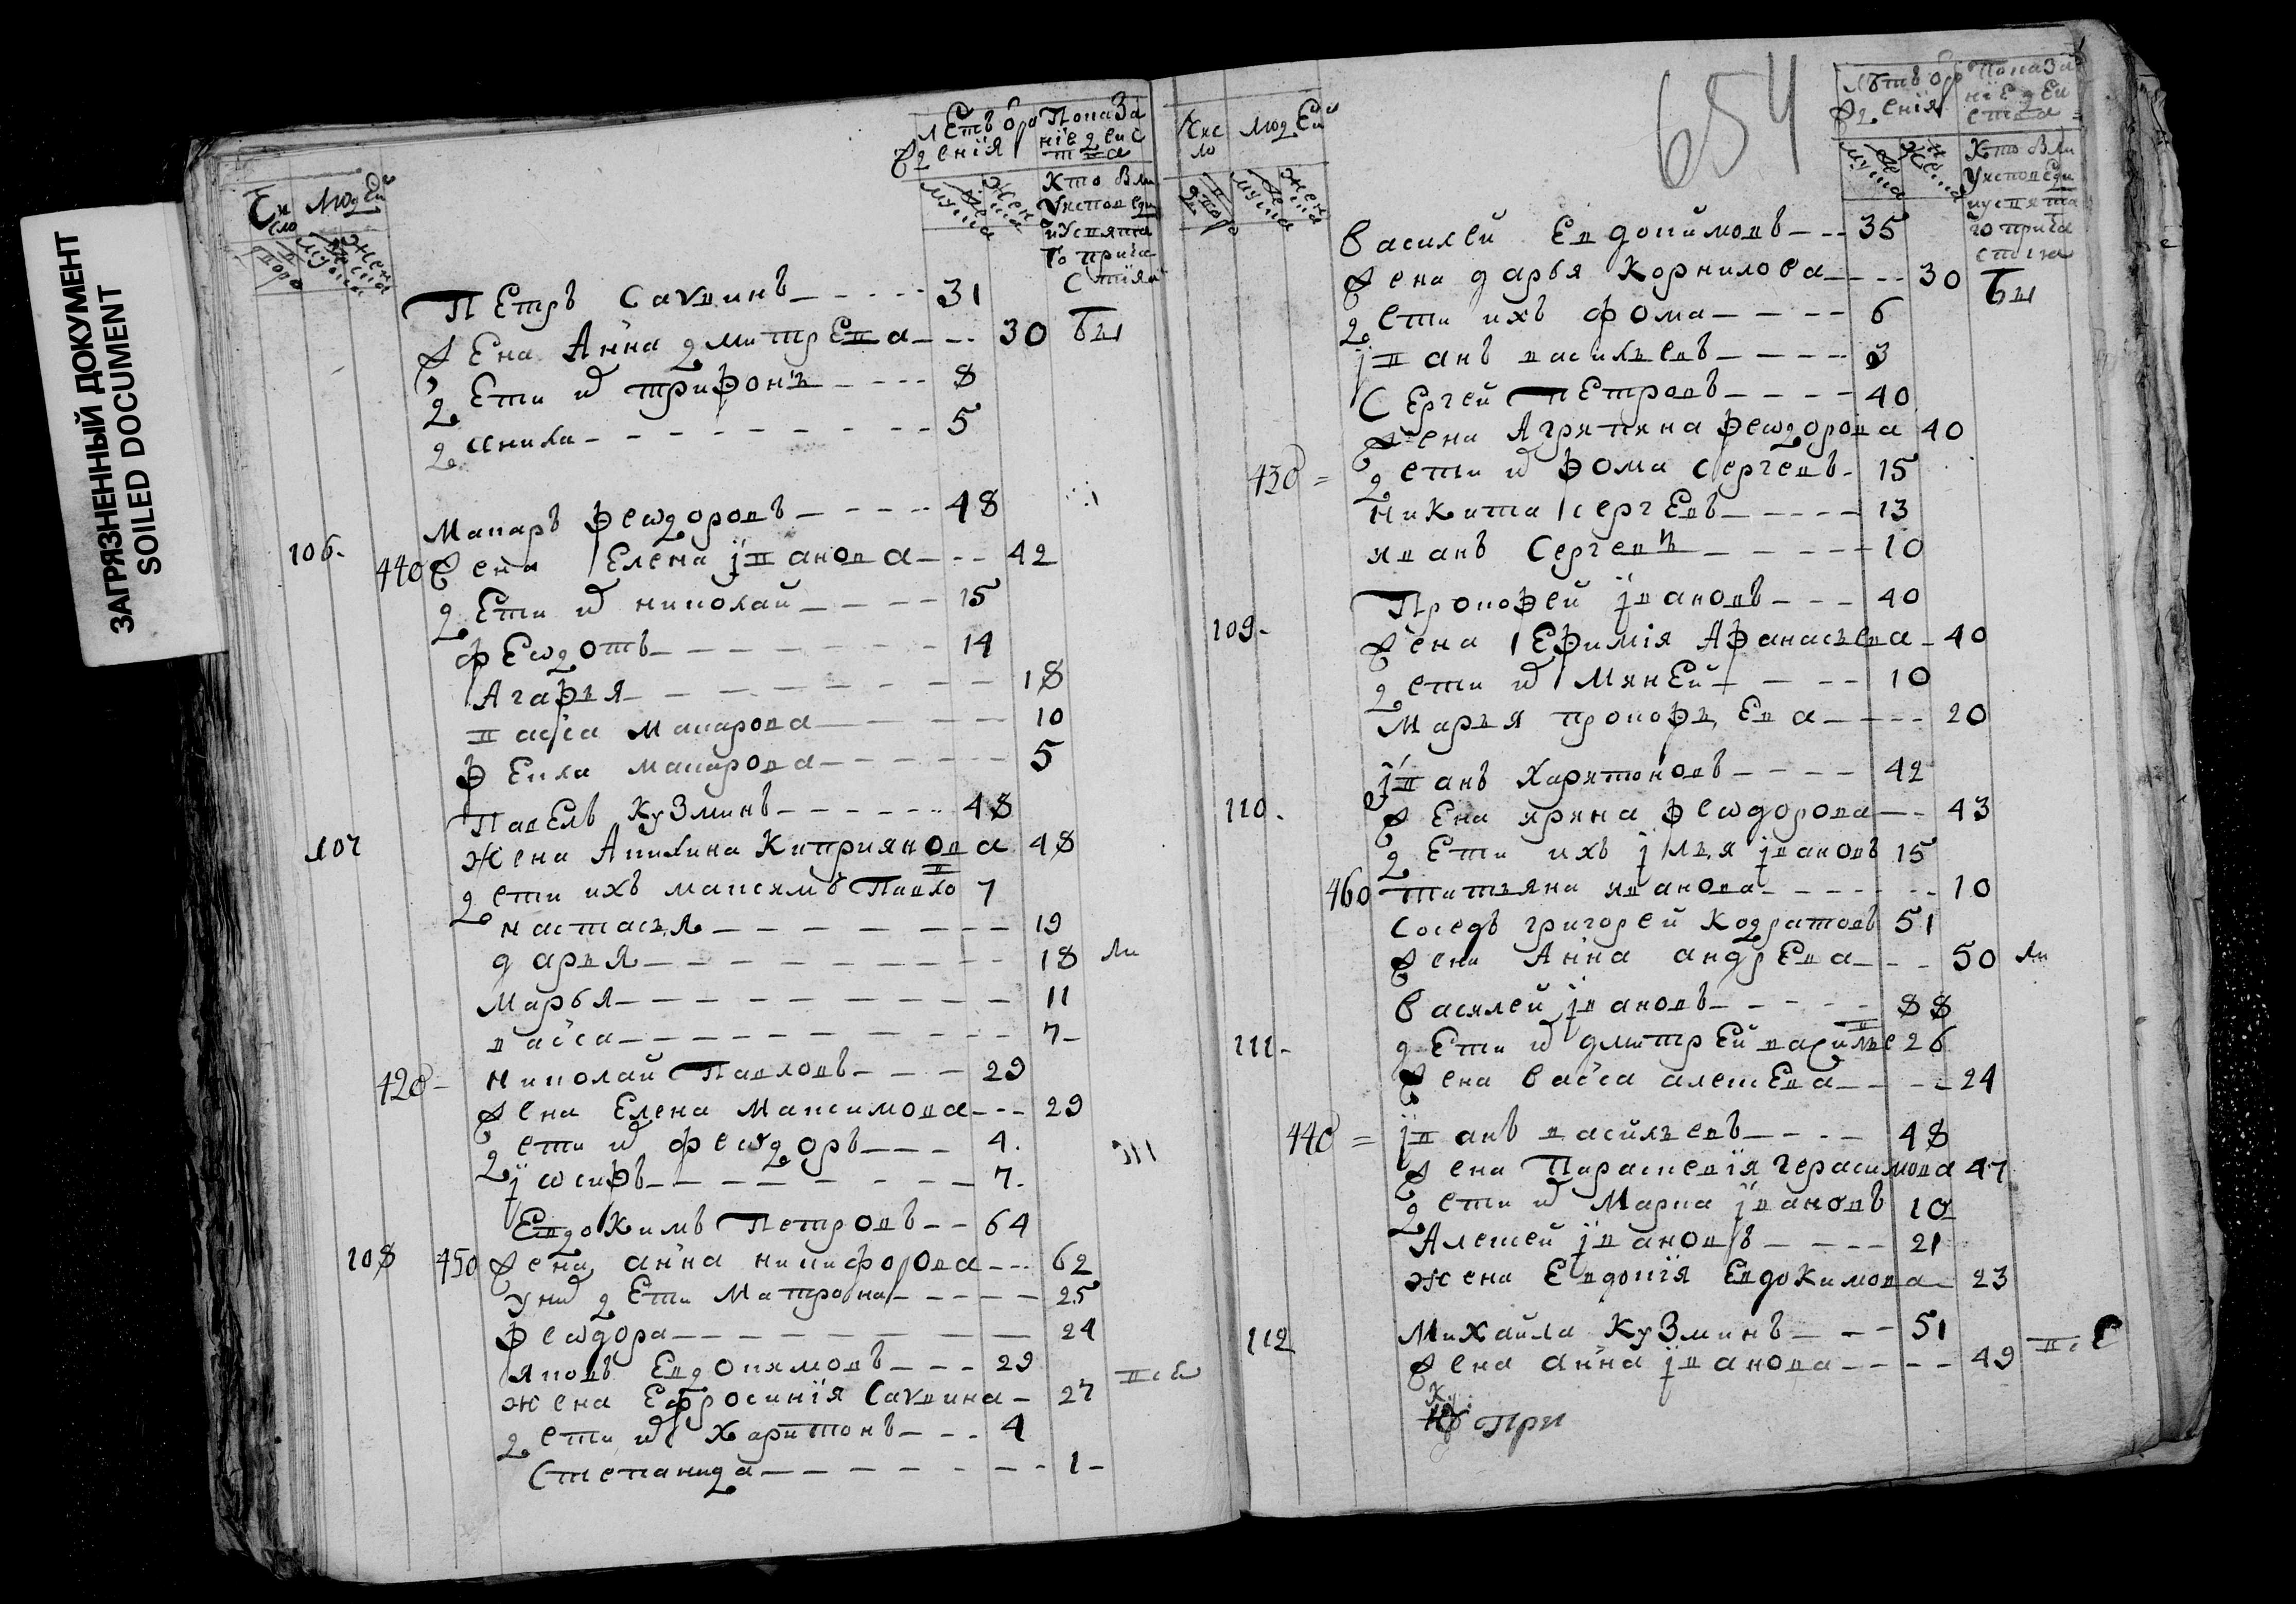 ЗАГРЯЗНЕННЫЙ ДОКУМЕНТ
SOILED DOCUMENT
Число людей
Летъ рожденія
Показаніе действа
двора мужеска женска
мужеска женска
Кто былъ у исповеди и святаго причастія
Петръ Саввинъ 31
жена Анна Дмитрева 30 бы
дети их Трифонъ 8
Данила 5
Макаръ Феѡдоровъ 48
106 440 жена Елена Їванова 42
дети их Николай 15
Феѡдотъ 14
Агафья 18
Васса Макарова 10
Фекла Макарова 5
Павелъ Кузминъ 48
107 жена Акилина Киприянова 48
дети ихъ Максимъ Павлов 7
Настасья 19
Дарья 18 ли
Марья 11
Васса 7
420 Николай Павловъ 29
жена Елена Максимова 29
дети их Феѡдоръ 4
Їѡсифъ 7
Евдокимъ Петровъ 64
108 450 жена Анна Никифорова 62
у них дети Матрона 25
Феѡдора 24
Яковъ Евдокимовъ 29
жена Ефросинія Саввина 27 все
дети их Харитонъ 4
Степанида 1
654
Число людей
Летъ рожденія
Показаніе действа
двора мужеска женска
мужеска женска
Кто былъ у исповеди и святаго причастия
Василей Евдокимовъ 35
жена Дарья Корнилова 30 бы
дети ихъ Фома 6
Їванъ Васильевъ 3
Сергей Петровъ 40
жена Агрипина Феѡдорова 40
430 дети их Фома Сергеевъ 15
Никита Сергевъ 13
Иванъ Сергевъ 10
Прокофей Ївановъ 40
109 жена Ефимія Афанасьева 40
дети их Макей 10
Марья Прокофьева 20
Їванъ Харитоновъ 42
110 жена Ирина Феѡдорова 43
дети ихъ Їлья Ївановъ 15
460 Татьяна Иванова 10
Соседъ Григорей Кодратовъ 51
жена Анна Андрева 50 ли
Василей Ївановъ 88
111 дети их Дмитрей Василье 26
жена Васса Алексева 24
440 Їванъ Васильевъ 48
жена Параскевія Герасимова 47
дети их Марка Ївановъ 10
Алексей Ївановъ 21
жена Евдокія Евдокимова 23
112 Михайла Кузминъ 51
жена Анна Їванова 49 все
При